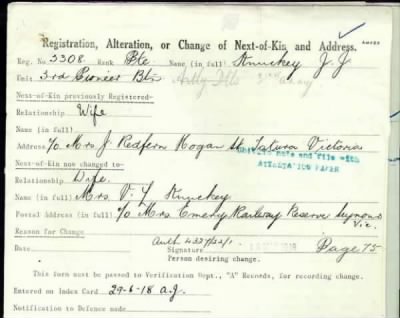 Registration, Alteration, or Change of Next-of-Kin and Address.
Reg. No. 3308 Rank Pte Name (in full) Knuckey J. J
Unit 3rd Pioneer Btn
Next-of-Kin previously Registered-
Relationship Wife
Name (in full)
Address c/o Mrs J. Redfern Hogan St Tatura Victoria
and File with
ATTESTATION PAPER
Next-of-Kin now changed to-
Relationship Wife.
Name (in full) Mrs. V. Y Knuckey
Postal Address (in full) c/o Mrs Emery Railway Reserve Seymour Vic.
Reason for Change
Date Signature Page 75
Person desiring change.
This form must be passed to Verification Dept., "A" Records, for recording change.
Entered on Index Card 29-6-18 A.J.
Notification to Defence made